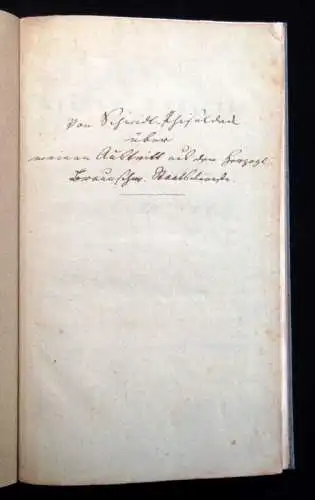 Von Schmidt-Phiseldeck
über
meinen Austritt aus dem Herzogl.
Braunschw. Staatsdienste.